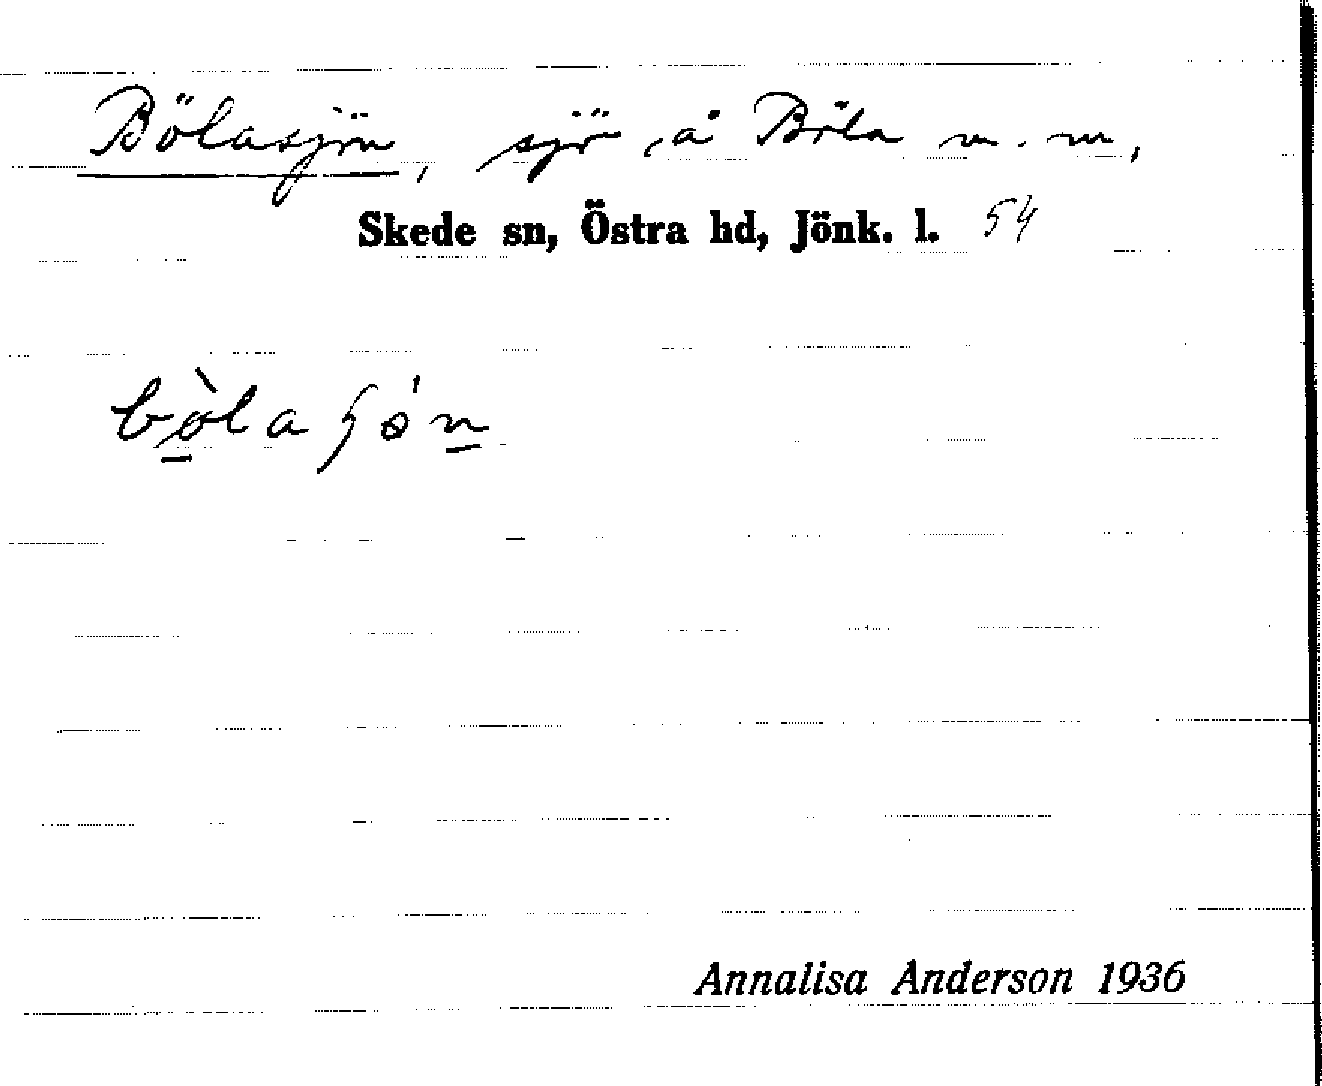 Bölasjön, sjö, å Böla m. m,
Skede sn, Östra hd, Jönk. l. 54
bö̀laʃö́n
Annalisa Anderson 1936